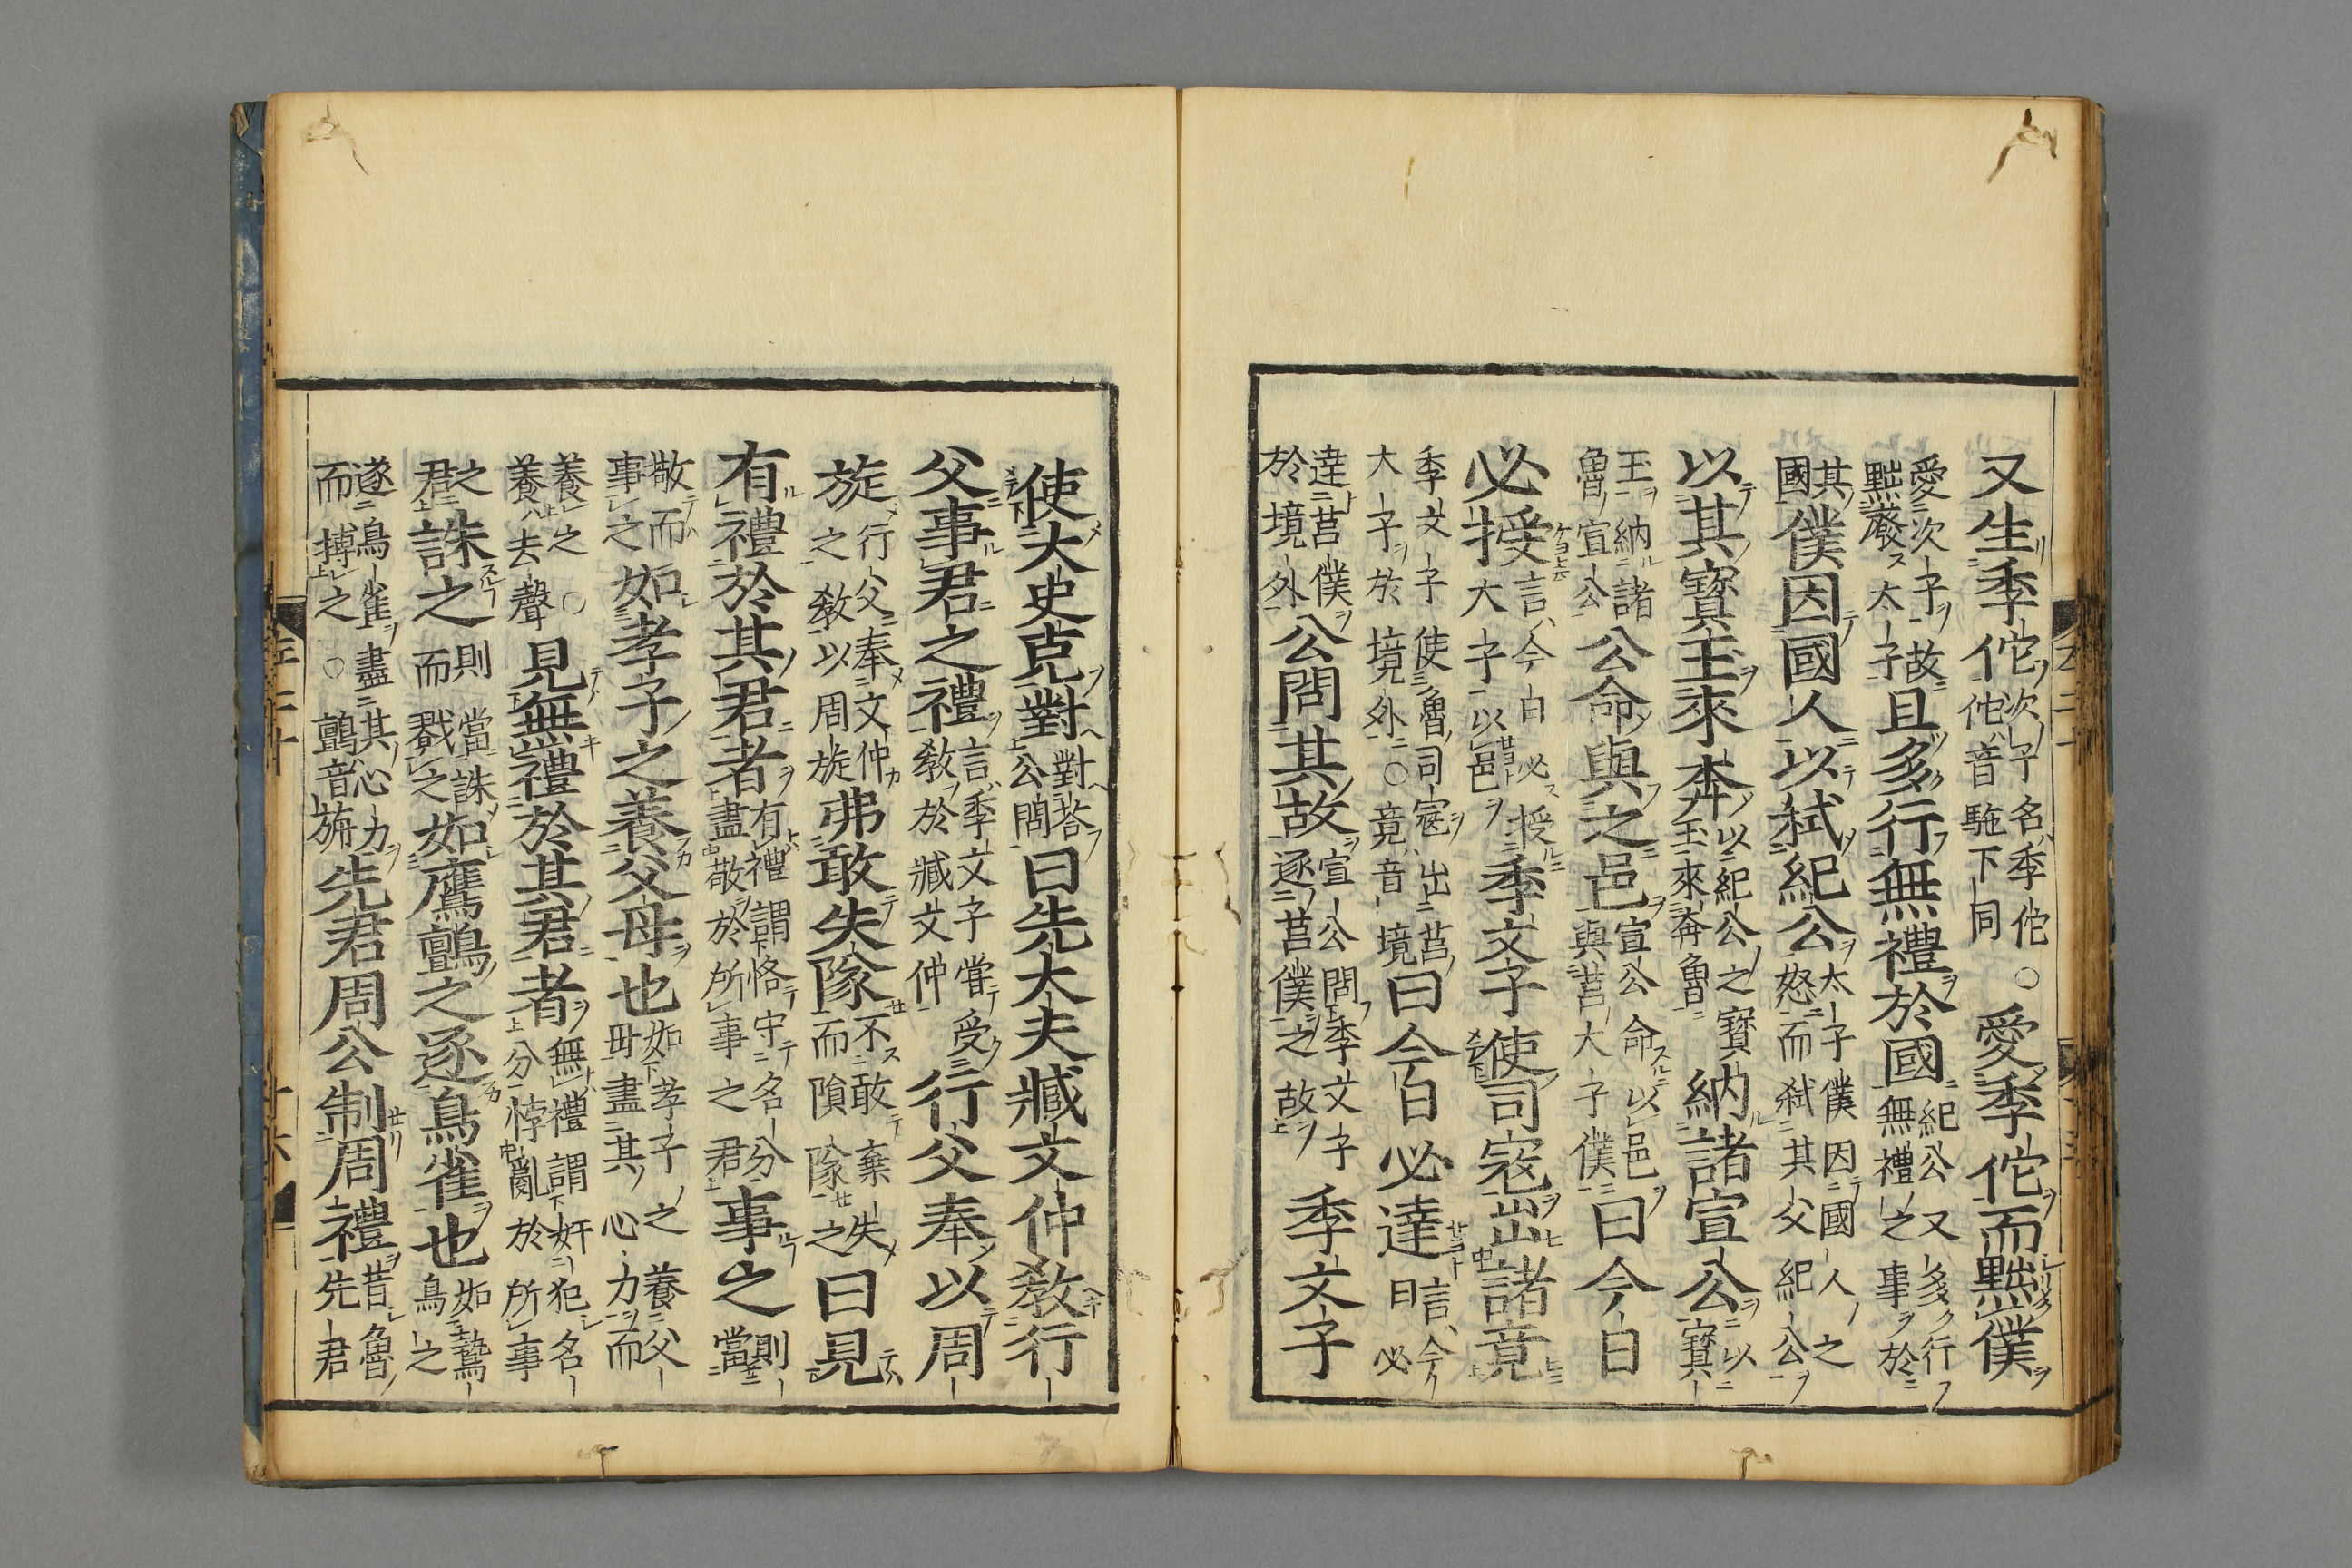 又生季佗次子名季佗佗音駞下同○愛季佗而黜僕
愛次子故黜廢太子且多行無禮於國紀公又多行無禮之事於
其國僕因國人以弑紀公太子僕因國人之怒而弑其父紀公
以其寶玉來奔以紀公之寶玉來奔魯納諸宣公以寶
玉納諸魯宣公公命與之邑宣公命以邑與莒大子僕曰今日
必授言今日必授大子以邑季文子使司寇出諸竟
季文子使魯司寇出莒大子於境外○竟音境曰今日必達言今日必
達莒僕於境外公問其故宣公問季文子逐莒僕之故季文子
使大史克對對荅公問曰先大夫臧文仲教行
父事君之禮言季文子嘗受教於臧文仲行父奉以周
旋行父奉文仲之教以周旋弗敢失隊不敢棄失而隕隊之曰見
有禮於其君者有禮謂恪守名分盡敬於所事之君事之則當
敬而事之如孝子之養父母也如孝子之養父母盡其心力而
養之○養去聲見無禮於其君者無禮謂奸犯名分悖亂於所事
之君誅之則當誅而戮之如鷹鸇之逐鳥雀也如鷙鳥之
遂鳥雀盡其心力而搏之○鸇音旃先君周公制周禮昔魯先君